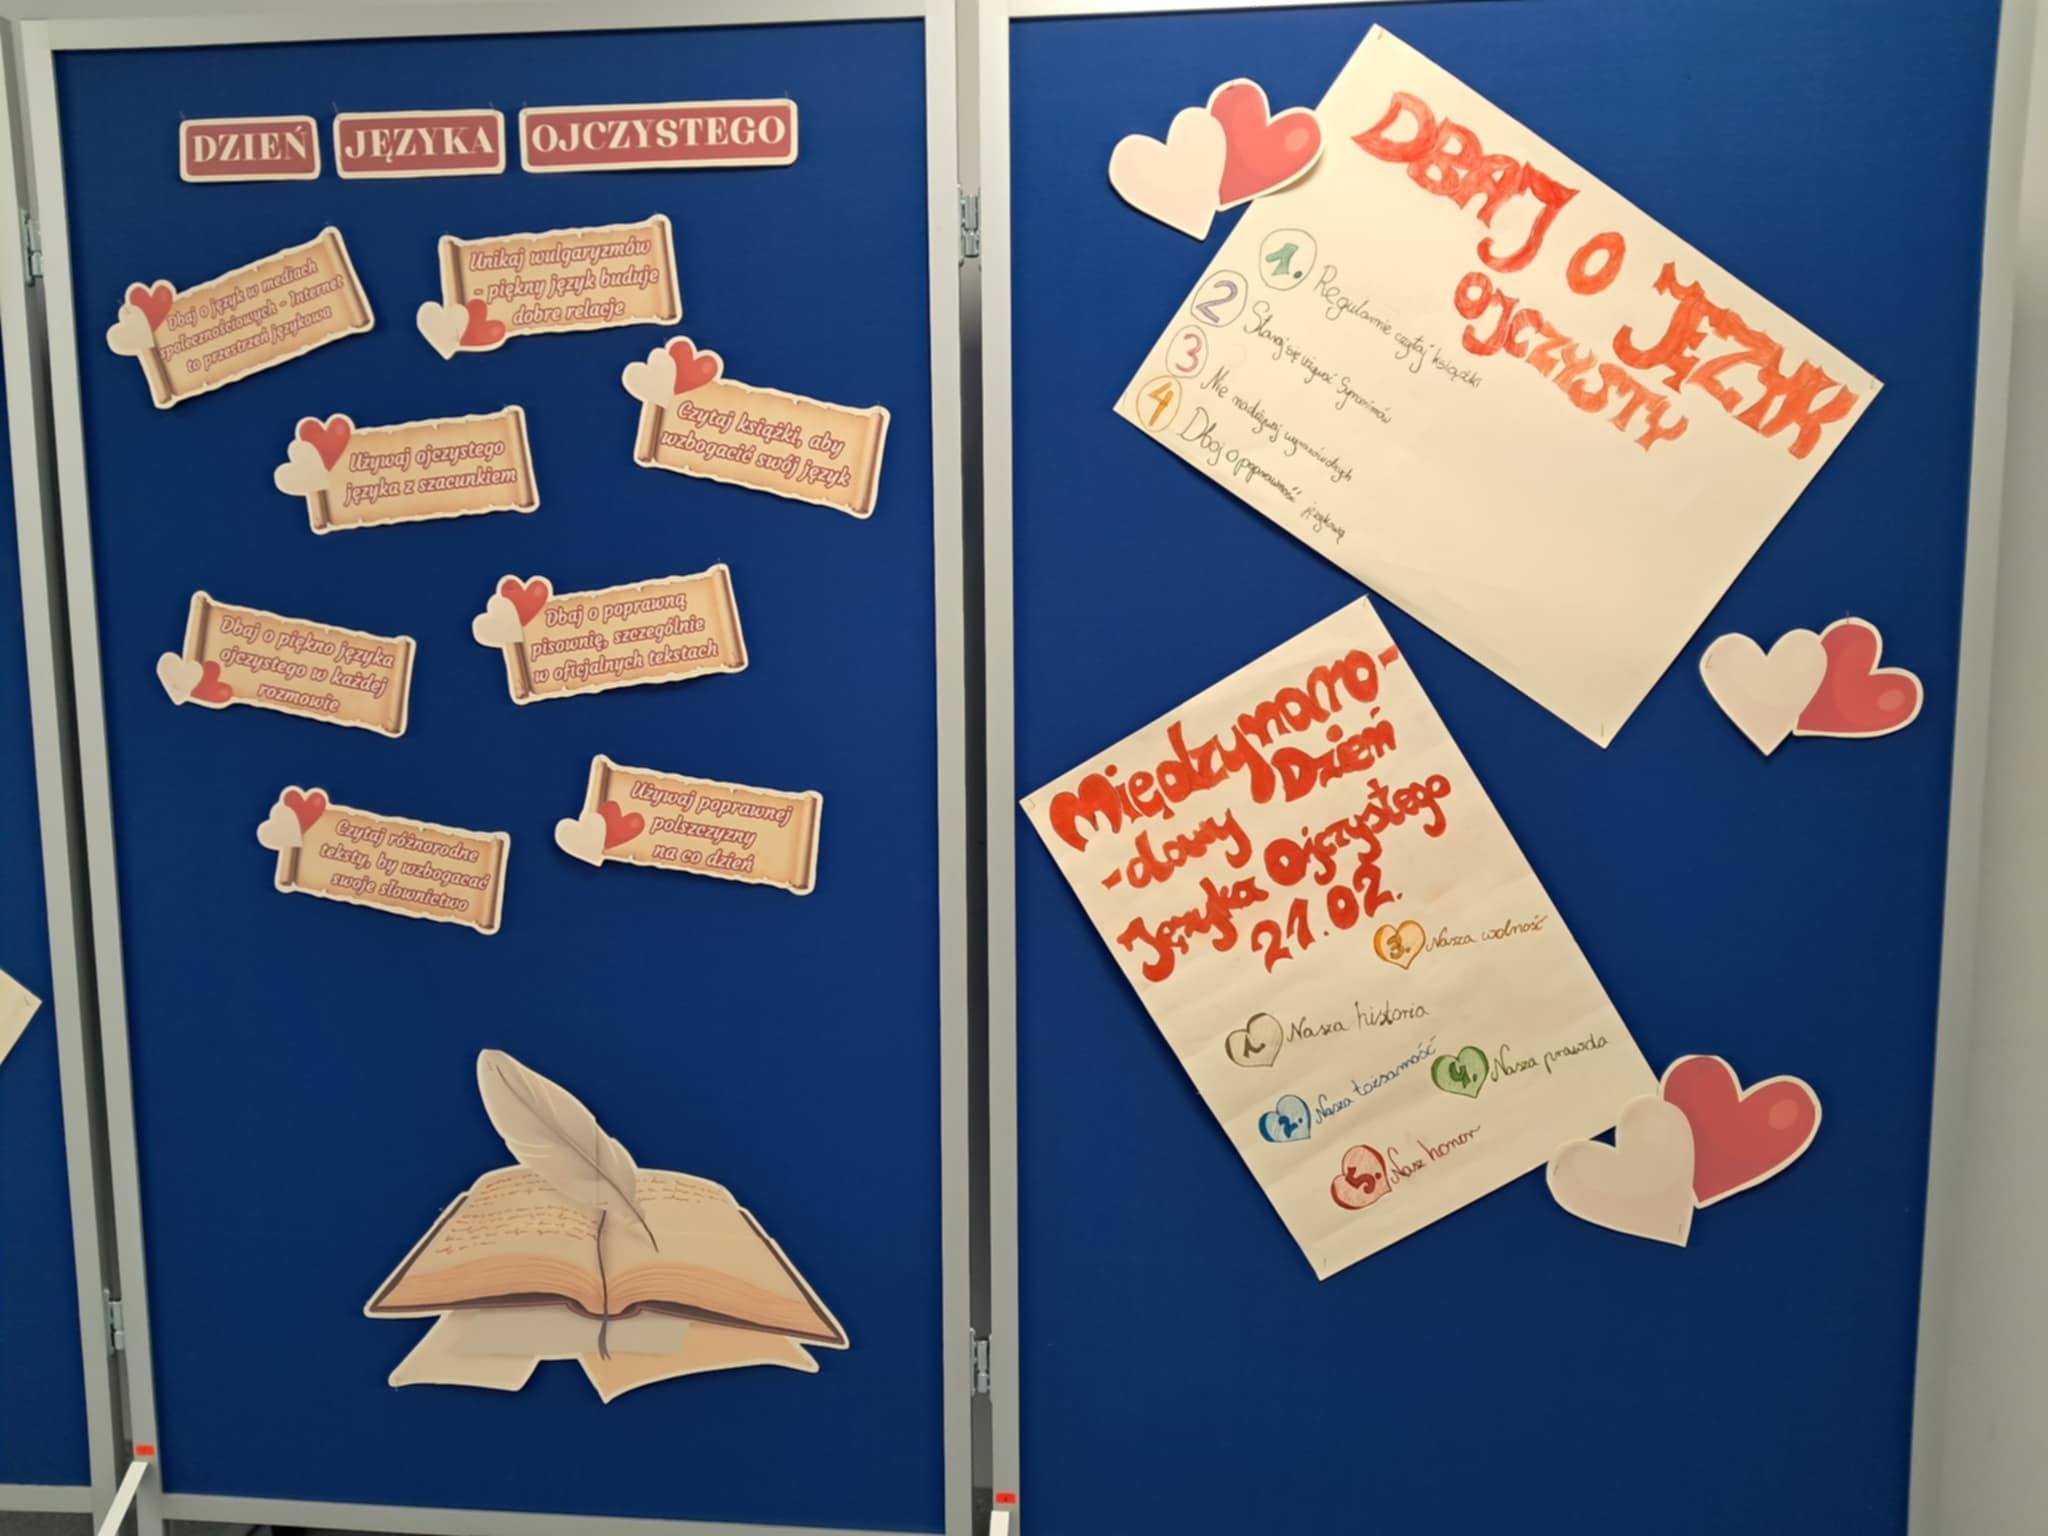 DZIEŃ JĘZYKA OJCZYSTEGO
Dbaj o język w mediach
społecznościowych - Internet
to przestrzeń językowa
Unikaj wulgaryzmów
- piękny język buduje
dobre relacje
Używaj ojczystego
języka z szacunkiem
Czytaj książki, aby
wzbogacić swój język
Dbaj o piękno języka
ojczystego w każdej
rozmowie
Dbaj o poprawną
pisownię, szczególnie
w oficjalnych tekstach
Czytaj różnorodne
teksty, by wzbogacać
swoje słownictwo
Używaj poprawnej
polszczyzny
na co dzień
DBAJ O JĘZYK
OJCZYSTY
1. Regularnie czytaj książki
2 Staraj się używać Synonimów
3 Nie nadużywaj
4 Dbaj o poprawność językową
Międzynaro-
-dowy Dzień
Języka Ojczystego
21.02.
3. Nasza wolność
1. Nasza historia
2. Nasza tożsamość
4. Nasza prawda
5. Nasz honor